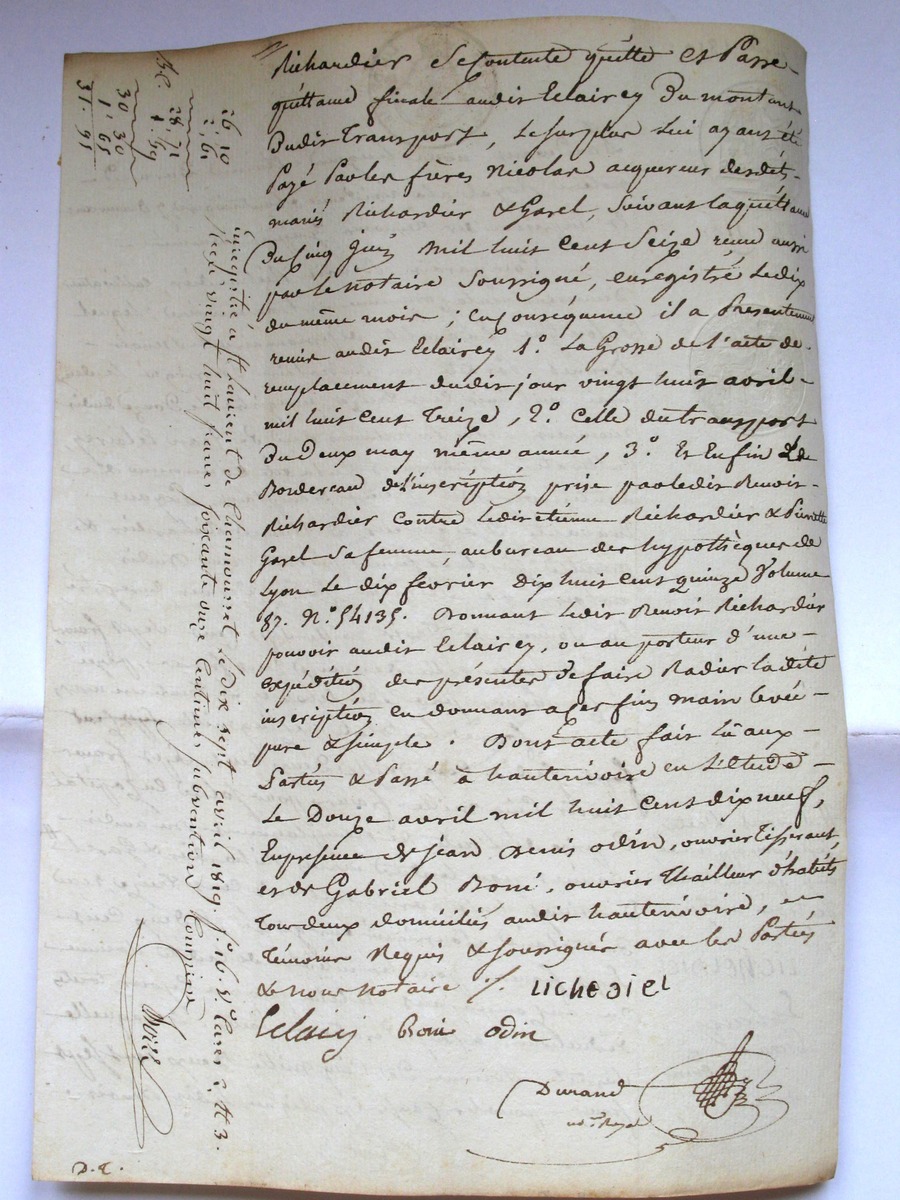 Richardier se Contente quitte et Passe
quittance finale audit Eclairey Du montant
Dudit Transport, Le surplus lui ayant été
Payé Par les frères Nicolas acquereur desdits
mariés Richardier & Garel, suivant la quittance
Du Cinq Juin mil huit Cent Seize reçue aussi
par le notaire soussigné, enregistré le dix
du même mois ; en Conséquence il a Présentement
remis audit Eclairey 1.° La Grosse de l'acte de
remplacement dudit jour vingt huit avril
mil huit cent Treize, 2.° Celle du transport
Du Deux may même année, 3.° Et Enfin Le
Bordereau de l'inscription prise par ledit Benoit
Richardier Contre ledit étienne Richardier & Pierrette
Garel sa femme, au bureau des hypothèques de
Lyon Le dix février dix huit cent quinze Volume
87. N.° 54135. Donnant ledit Benoit Richardier
pouvoir audit Eclairey, ou au porteur d'une
expédition des présentes de faire Radier ladite
inscription en donnant a ces fins main levée
pure & simple. Dont acte fait Lû aux
Parties & Passé à hauterivoire en L'Etude
Le Douze avril mil huit Cent dix neuf,
En présence de jean Denis odin, ouvrier Tisserant,
et de Gabriel Boni, ouvrier Thailleur d'habits
Tous deux domiciliés audit hauterivoire, en
Témoins Requis & soussignés avec les Parties
& nous notaire
Eclairey Boni odin
Durand
not. Royal
Enregistré à St Laurent de Chamousset le dix sept avril 1819. f.° 16. v.° Cases 2 & 3.
Reçu vingt huit francs soixante onze Centimes subvention Comprise
26 10
2, 61
28, 71
1. 59
30, 30
1, 65
31. 95
D. E.